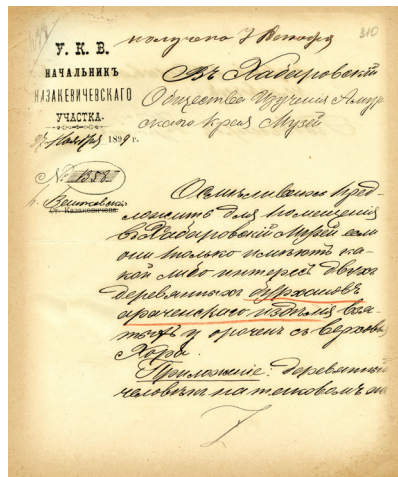 310
получено 7 Ноября
У. К. В.
НАЧАЛЬНИКЪ
КАЗАКЕВИЧЕВСКАГО
УЧАСТКА.
Ноября 1899 г.
№ 1358
Ст. Казакевичева
Въ Хабаровскій
Общества Изученія Амур
скаго Края Музей
Осмѣливаюсь пред-
ложить для помѣщенія
въ Хабаровскій Музей если
они только имѣютъ ка-
кой либо интересъ двухъ
деревянныхъ бурхановъ
ороченскаго издѣлія взя-
тыхъ у ороченъ съ верховья
Хора.
Приложеніе: деревянный
человѣкъ на